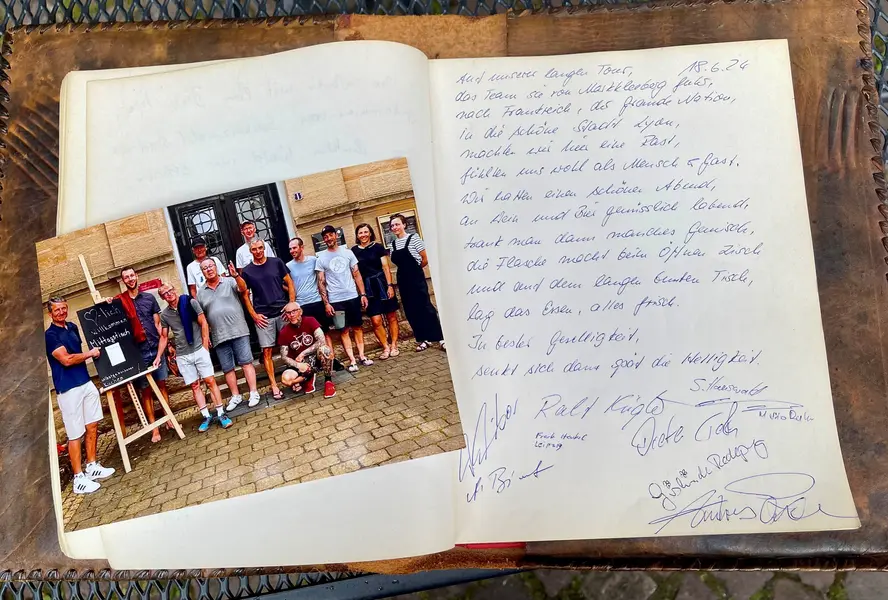 Herzlich
Willkommen
Mittagstisch
Auf unserer langen Tour, 18.6.24
das Team sie von Markkleeberg fuhr,
nach Frankreich, der Grande Nation,
in die schöne Stadt Lyon,
machten wir hier eine Rast,
fühlten uns wohl als Mensch & Gast.
Wir hatten einen schönen Abend,
an Wein und Bier genüsslich labend,
trank man dann manches Gemisch,
die Flasche macht beim Öffnen Zisch
und auf dem langen bunten Tisch,
lag das Essen, alles frisch.
In bester Geselligkeit,
senkt sich dann spät die Helligkeit.
Ralf Kügler
Frank
Leipzig
Dieter